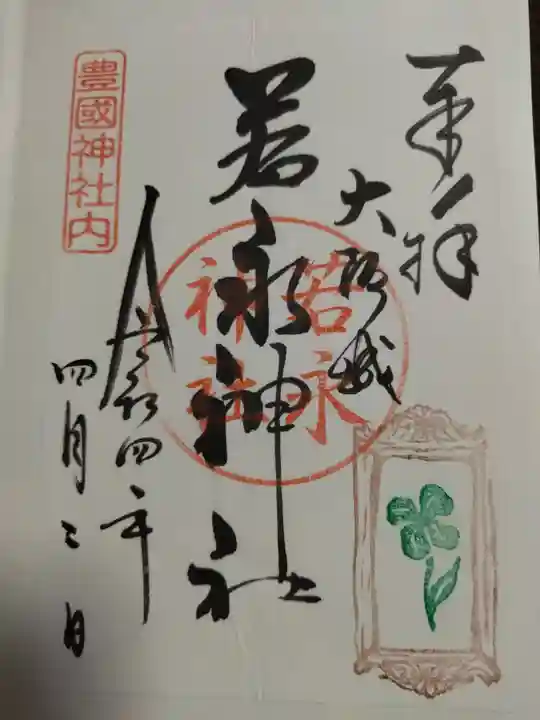 奉拝
大阪城
若永神社
若永
神社
令和四年
四月三日
豊國神社内